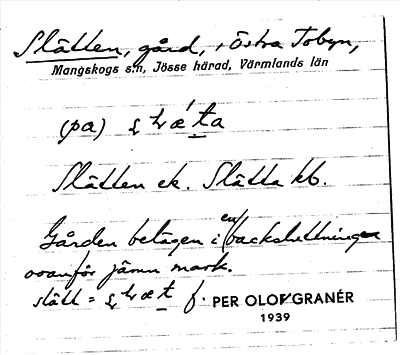 Slätten, gård, i Östra Tobyn,
Mangskogs s:n, Jösse härad, Värmlands län
(pa)
Slätten ek. Slätta kb.
Gården belägen i en backsluttning
ovanför jämn mark.
slätt = f.
PER OLOF GRANÉR
1939